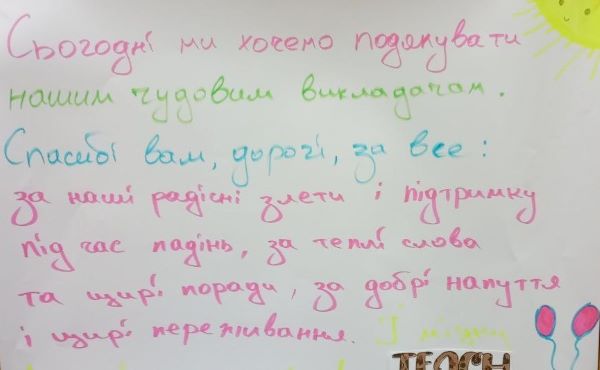 Сьогодні ми хочемо подякувати
нашим чудовим викладачам.
Спасибі вам, дорогі, за все:
за наші радісні злети і підтримку
під час падінь, за теплі слова
та щирі поради, за добрі напуття
і щирі переживання. І